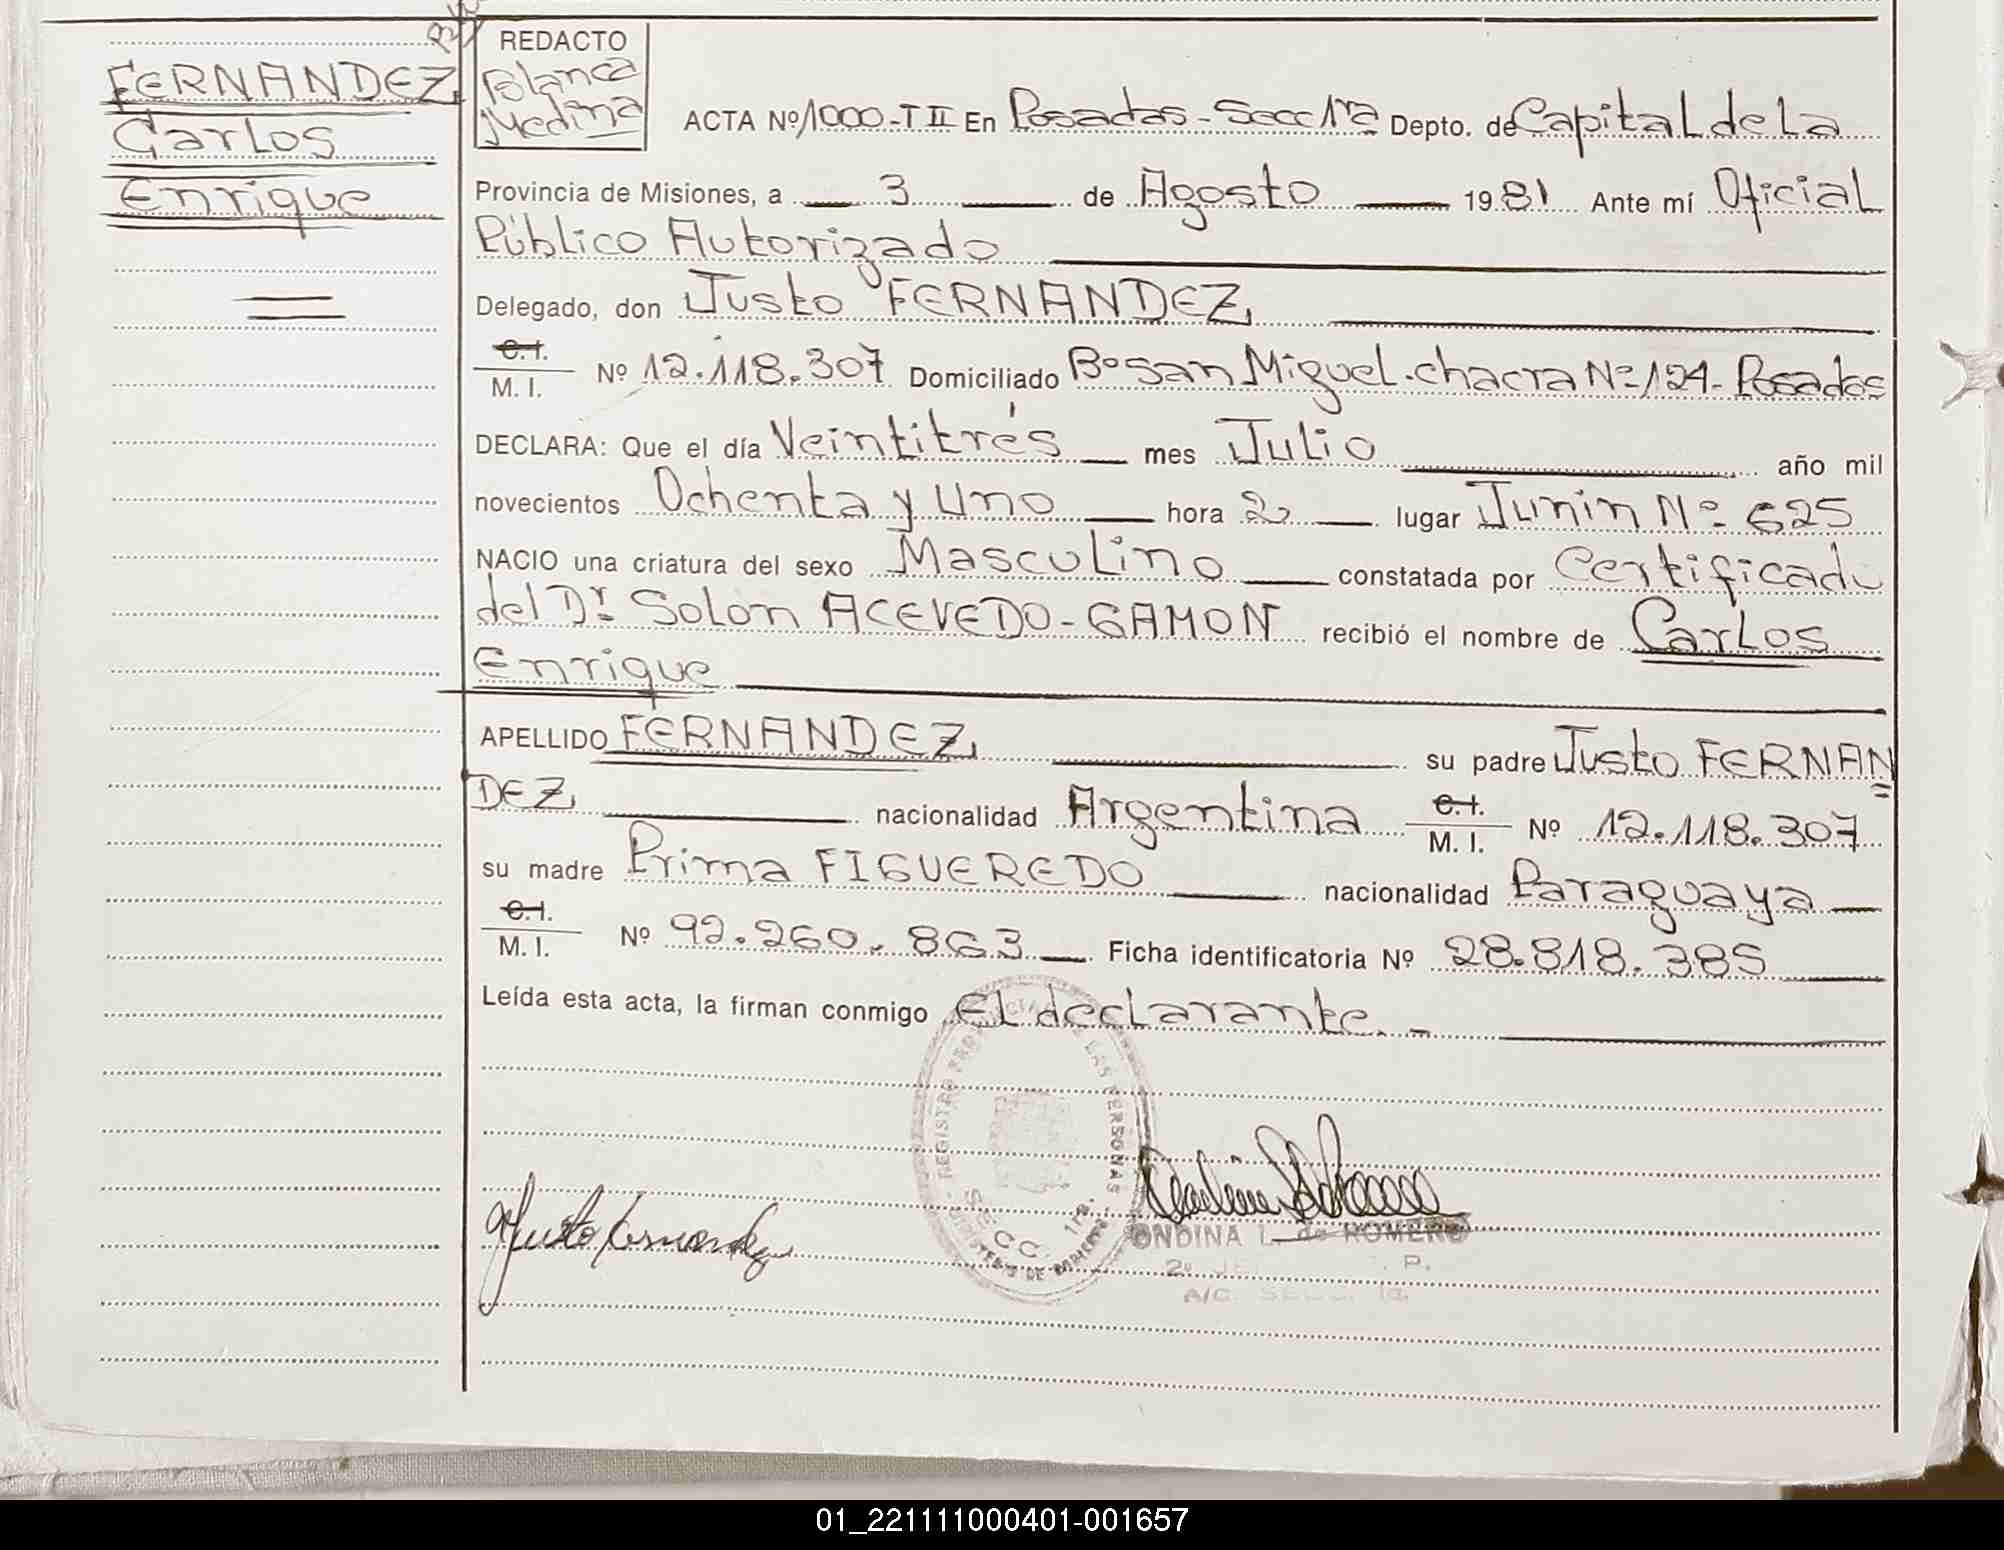 FERNANDEZ
Carlos
Enrique
REDACTO
Blanca
Medina
ACTA Nº 1000-T II En Posadas-Secc 1ra Depto. de Capital de La
Provincia de Misiones, a 3 de Agosto 1981 Ante mí Oficial
Público Autorizado
Delegado, don Justo FERNANDEZ
C.I.
M. I. Nº 12.118.307 Domiciliado Bº San Miguel-chacra Nº-124-Posadas
DECLARA: Que el día Veintitrés mes Julio año mil
novecientos Ochenta y Uno hora 2 lugar Junin Nº- 625
NACIO una criatura del sexo Masculino constatada por Certificado
del Dr. Solon ACEVEDO-GAMON recibió el nombre de Carlos
Enrique
APELLIDO FERNANDEZ su padre Justo FERNAN
DEZ nacionalidad Argentina C.I.
M. I. Nº 12.118.307
su madre Prima FIGUEREDO nacionalidad Paraguaya
C.I.
M. I. Nº 92.260.863 Ficha identificatoria Nº 28.818.385
Leída esta acta, la firman conmigo El declarante.-
REGISTRO PROVINCIAL DE LAS PERSONAS
SECC. 1ra.
Justo Fernandez
ONDINA L. de ROMERO
2º JE P.
A/C. SECC. 1a.
01_221111000401-001657